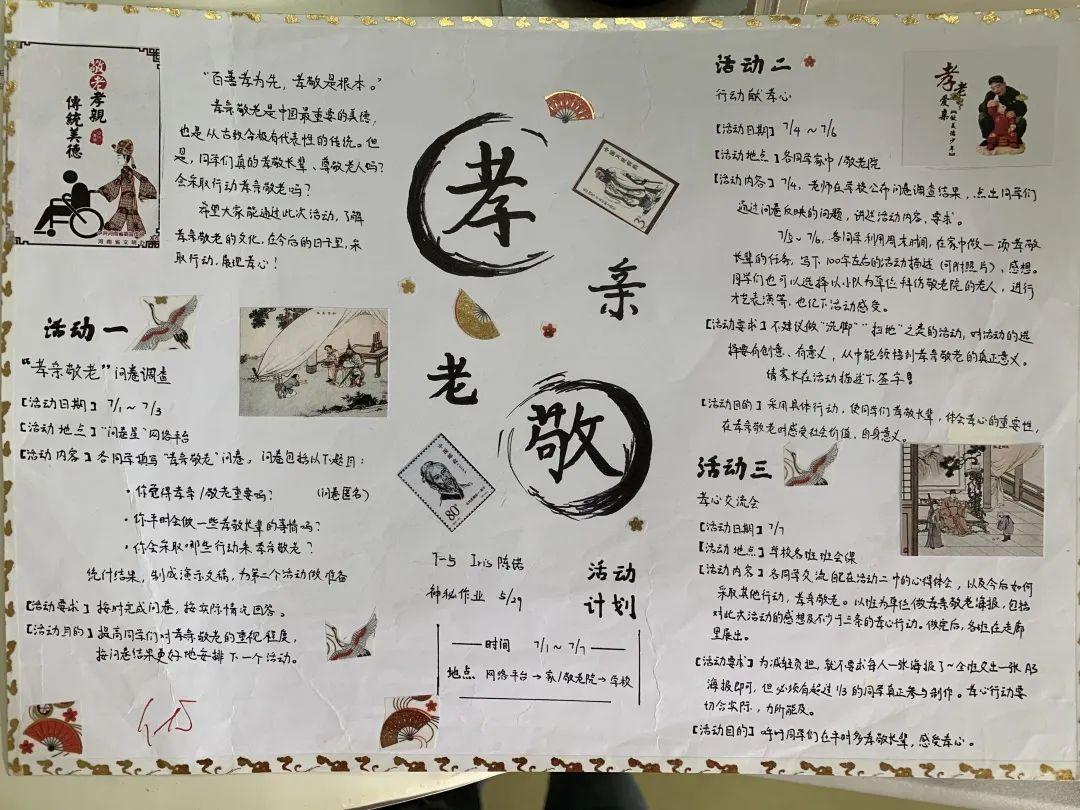 敬老孝親
傳統美德
河南省文明
“百善孝为先，孝敬是根本。”
孝亲敬老是中国最重要的美德，
也是从古数今极有代表性的传统。但
是，同学们真的孝敬长辈、尊敬老人吗？
会采取行动孝亲敬老吗？
希望大家能通过此次活动，了解
孝亲敬老的文化，在今后的日子里，采
取行动，展现孝心！
活动一
“孝亲敬老”问卷调查
【活动日期】7/1～7/3
【活动地点】“问卷星”网络平台
【活动内容】各同学填写“孝亲敬老”问卷，问卷包括以下题目：
·你觉得孝亲/敬老重要吗？ （问卷匿名）
·你平时会做一些孝敬长辈的事情吗？
·你会采取哪些行动来孝亲敬老？
统计结果，制成演示文稿，为第二个活动做准备
【活动要求】按时完成问卷，按实际情况回答。
【活动目的】提高同学们对孝亲敬老的重视程度，
按问卷结果更好地安排下一个活动。
孝
亲
老
敬
中国人民邮政
80
7-5 Iris 陈诺
神秘作业 5/29
活动
计划
时间 7/1～7/7
地点 网络平台→家/敬老院→学校
活动二
行动献孝心
【活动日期】7/4～7/6
【活动地点】各同学家中/敬老院
【活动内容】7/4，老师在学校公布问卷调查结果，点出同学们
通过问卷反映的问题，讲述活动内容、要求。
7/5～7/6，各同学利用周末时间，在家中做一项孝敬
长辈的任务，写下100字左右的活动描述（可附照片）、感想。
同学们也可以选择以小队为单位拜访敬老院的老人，进行
才艺表演等，也记下活动感受。
【活动要求】不建议做“洗脚”“扫地”之类的活动，对活动的选
择要有创意、有意义，从中能领悟到孝亲敬老的真正意义。
请家长在活动描述下签字！
【活动目的】采用具体行动，使同学们孝敬长辈，体会孝心的重要性，
在孝亲敬老时感受社会价值、自身意义。
孝老
爱亲
活动三
孝心交流会
【活动日期】7/7
【活动地点】学校各班班会课
【活动内容】各同学交流自己在活动二中的心得体会，以及今后如何
采取其他行动，孝亲敬老。以班为单位做孝亲敬老海报，包括
对此次活动的感想及不少于三条的孝心行动。做完后，各班在走廊
里展出。
【活动要求】为减轻负担，就不要求每人一张海报了～全班只出一张A3
海报即可，但必须有超过1/3的同学真正参与制作。孝心行动要
切合实际，力所能及。
【活动目的】呼吁同学们在平时多孝敬长辈，感受孝心。